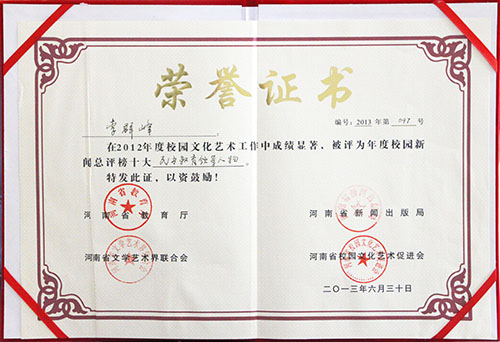 荣誉证书
编号：2013年第047号
常群峰
在2012年度校园文化艺术工作中成绩显著，被评为年度校园新
闻总评榜十大民办教育领军人物。
特发此证，以资鼓励！
河南省教育厅
河南省新闻出版局
河南省文学艺术界联合会
河南省校园文化艺术促进会
二〇一三年六月三十日